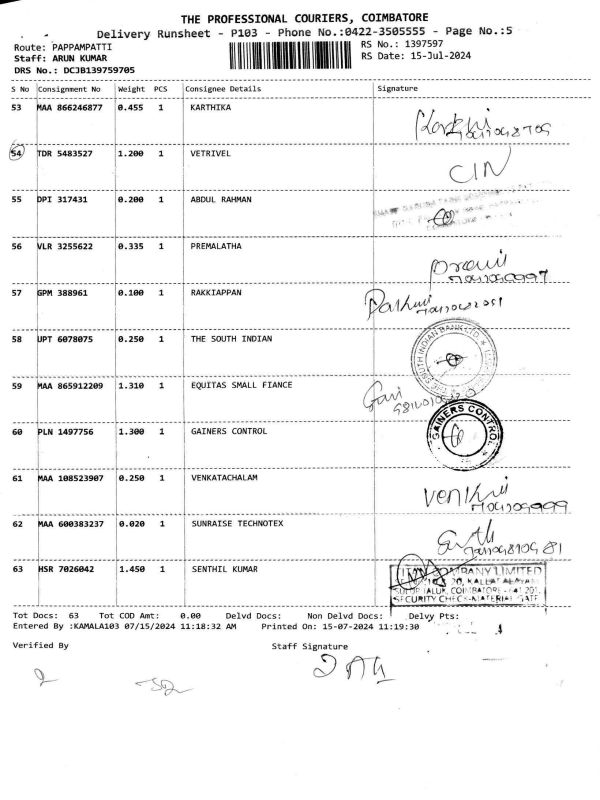 THE PROFESSIONAL COURIERS, COIMBATORE
Delivery Runsheet - P103 - Phone No.:0422-3505555 - Page No.:5
Route: PAPPAMPATTI RS No.: 1397597
Staff: ARUN KUMAR RS Date: 15-Jul-2024
DRS No.: DCJB139759705
S No Consignment No Weight PCS Consignee Details Signature
53 MAA 866246877 0.455 1 KARTHIKA
54 TDR 5483527 1.200 1 VETRIVEL
55 DPI 317431 0.200 1 ABDUL RAHMAN
56 VLR 3255622 0.335 1 PREMALATHA
57 GPM 388961 0.100 1 RAKKIAPPAN
58 UPT 6078075 0.250 1 THE SOUTH INDIAN
THE SOUTH INDIAN BANK LTD.
59 MAA 865912209 1.310 1 EQUITAS SMALL FIANCE
60 PLN 1497756 1.300 1 GAINERS CONTROL
GAINERS CONTROL
61 MAA 108523907 0.250 1 VENKATACHALAM
62 MAA 600383237 0.020 1 SUNRAISE TECHNOTEX
63 HSR 7026042 1.450 1 SENTHIL KUMAR
COMPANY LIMITED
SECURITY CHECK-MATERIAL GATE
Tot Docs: 63 Tot COD Amt: 0.00 Delvd Docs: Non Delvd Docs: Delvy Pts:
Entered By :KAMALA103 07/15/2024 11:18:32 AM Printed On: 15-07-2024 11:19:30
Verified By Staff Signature